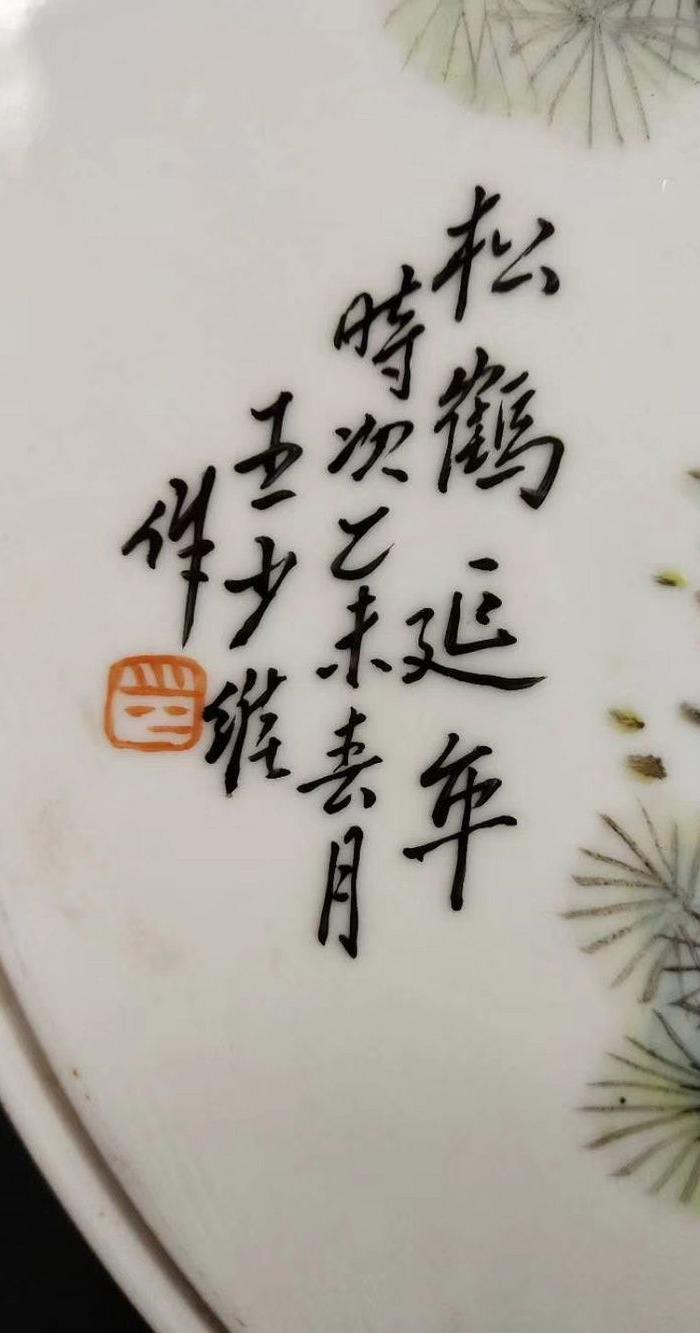 松鶴延年
時次乙未春月
王少維
作